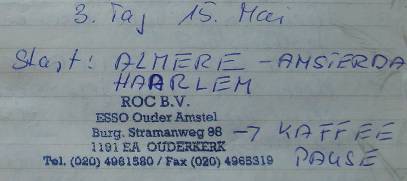 3. Tag 15. Mai
Start: ALMERE - AMSTERDA
HAARLEM
ROC B.V.
ESSO Ouder Amstel
Burg. Stramanweg 98
1191 EA OUDERKERK
Tel. (020) 4961580 / Fax (020) 4965319
→ KAFFEE
PAUSE